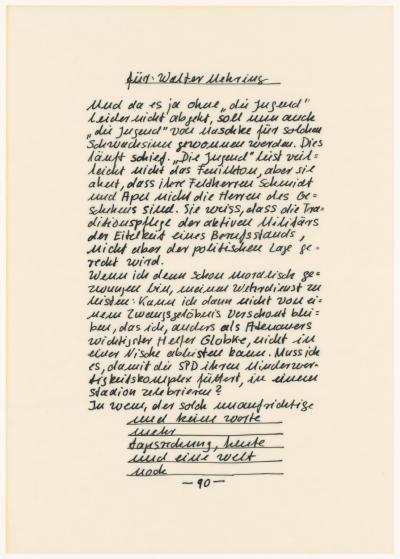 für: Walter Mehring
Und da es ja ohne „die Jugend"
leider nicht abgeht, soll nun auch
„die Jugend" von Maschke für solchen
Schwachsinn gewonnen werden. Dies
läuft schief. „Die Jugend" liest viel-
leicht nicht das Feuilleton, aber sie
ahnt, dass ihre Feldherren Schmidt
und Apel nicht die Herren des Ge-
schehens sind. Sie weiss, dass die Tra-
ditionspflege der aktiven Militärs
der Eitelkeit eines Berufsstands,
nicht aber der politischen Lage ge-
recht wird.
Wenn ich denn schon moralisch ge-
zwungen bin, meinen Wehrdienst zu
leisten: Kann ich dann nicht von ei-
nem Zwangsgelöbnis verschont blei-
ben, das ich, anders als Adenauers
wichtigster Helfer Globke, nicht in
einer Nische ableisten kann. Muss ich
es, damit die SPD ihren Minderwer-
tigkeitskomplex füttert, in einem
Stadion zelebrieren?
In wem, der solch unaufrichtige
und keine worte
mehr
tagsordnung, heute
und eine welt
noch
— 90 —